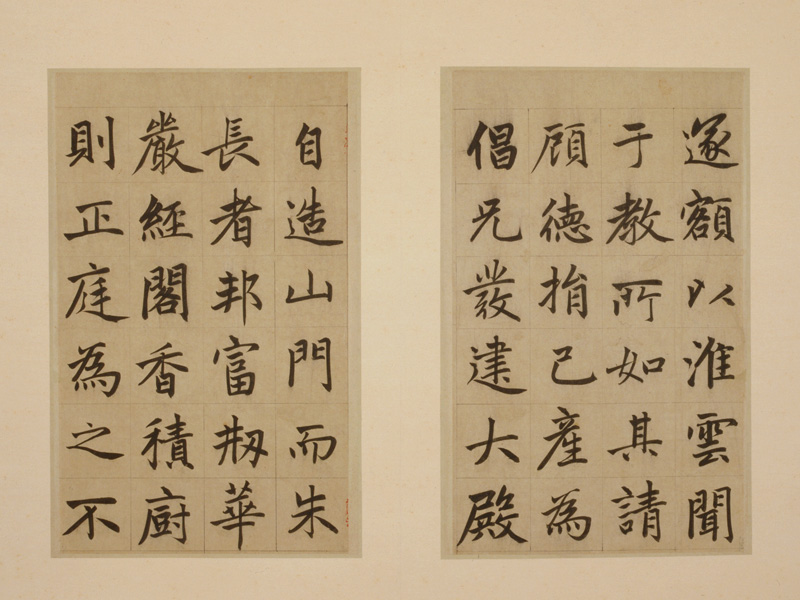 遂額以淮雲聞
于教所如其請
顧德捐己產為
倡兄發建大殿
自造山門而朱
長者邦富刱華
嚴經閣香積廚
則正庭為之不